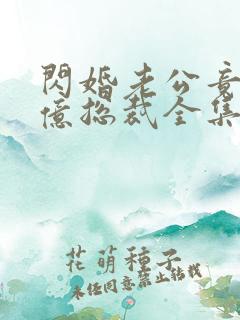 閃婚老公竟
億總裁全集
花萌種子
未經同意禁止轉載